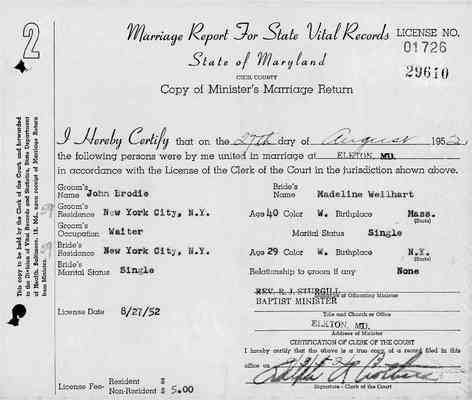 2
Marriage Report For State Vital Records
LICENSE NO.
01726
State of Maryland
29610
CECIL COUNTY
Copy of Minister's Marriage Return
This copy to be held by the Clerk of the Court and forwarded
to the Division of Vital Records and Statistics, State Department
of Health, Baltimore, 18, Md., upon receipt of Marriage Return
from Minister.
I Hereby Certify that on the 27th day of August 1952
the following persons were by me united in marriage at ELKTON, MD.
in accordance with the License of the Clerk of the Court in the jurisdiction shown above.
Groom's Name John Brodie Bride's Name Madeline Weilhart
Groom's Residence New York City, N.Y. Age 40 Color W. Birthplace Mass.
(State)
Groom's Occupation Waiter Marital Status Single
Bride's Residence New York City, N.Y. Age 29 Color W. Birthplace N.Y.
(State)
Bride's Marital Status Single Relationship to groom if any None
REV. R. J. STURGILL
Signature of Officiating Minister
BAPTIST MINISTER
License Date 8/27/52
Title and Church or Office
ELKTON, MD.
Address of Minister
CERTIFICATION OF CLERK OF THE COURT
I hereby certify that the above is a true copy of a record filed in this
office on
License Fee- Resident $
Non-Resident $ 5.00
Signature - Clerk of the Court